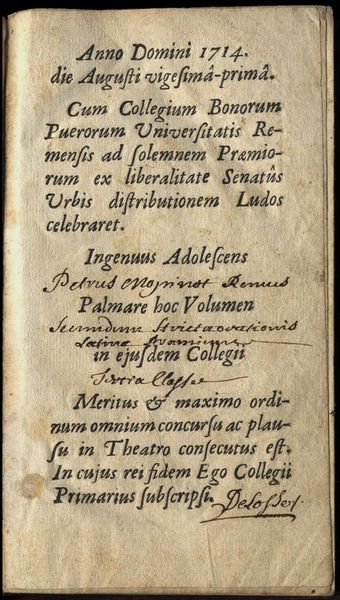 Anno Domini 1714.
die Augusti vigesimâ-primâ.
Cum Collegium Bonorum
Puerorum Universitatis Re-
mensis ad solemnem Præmio-
rum ex liberalitate Senatûs
Urbis distributionem Ludos
celebraret.
Ingenuus Adolescens
Petrus Mopinot Remus
Palmare hoc Volumen
Secundum strictæ orationis
Latinæ præmium
in ejusdem Collegii
Tertia Classe
Meritus & maximo ordi-
num omnium concursu ac plau-
su in Theatro consecutus est.
In cujus rei fidem Ego Collegii
Primarius subscripsi. DeLosses